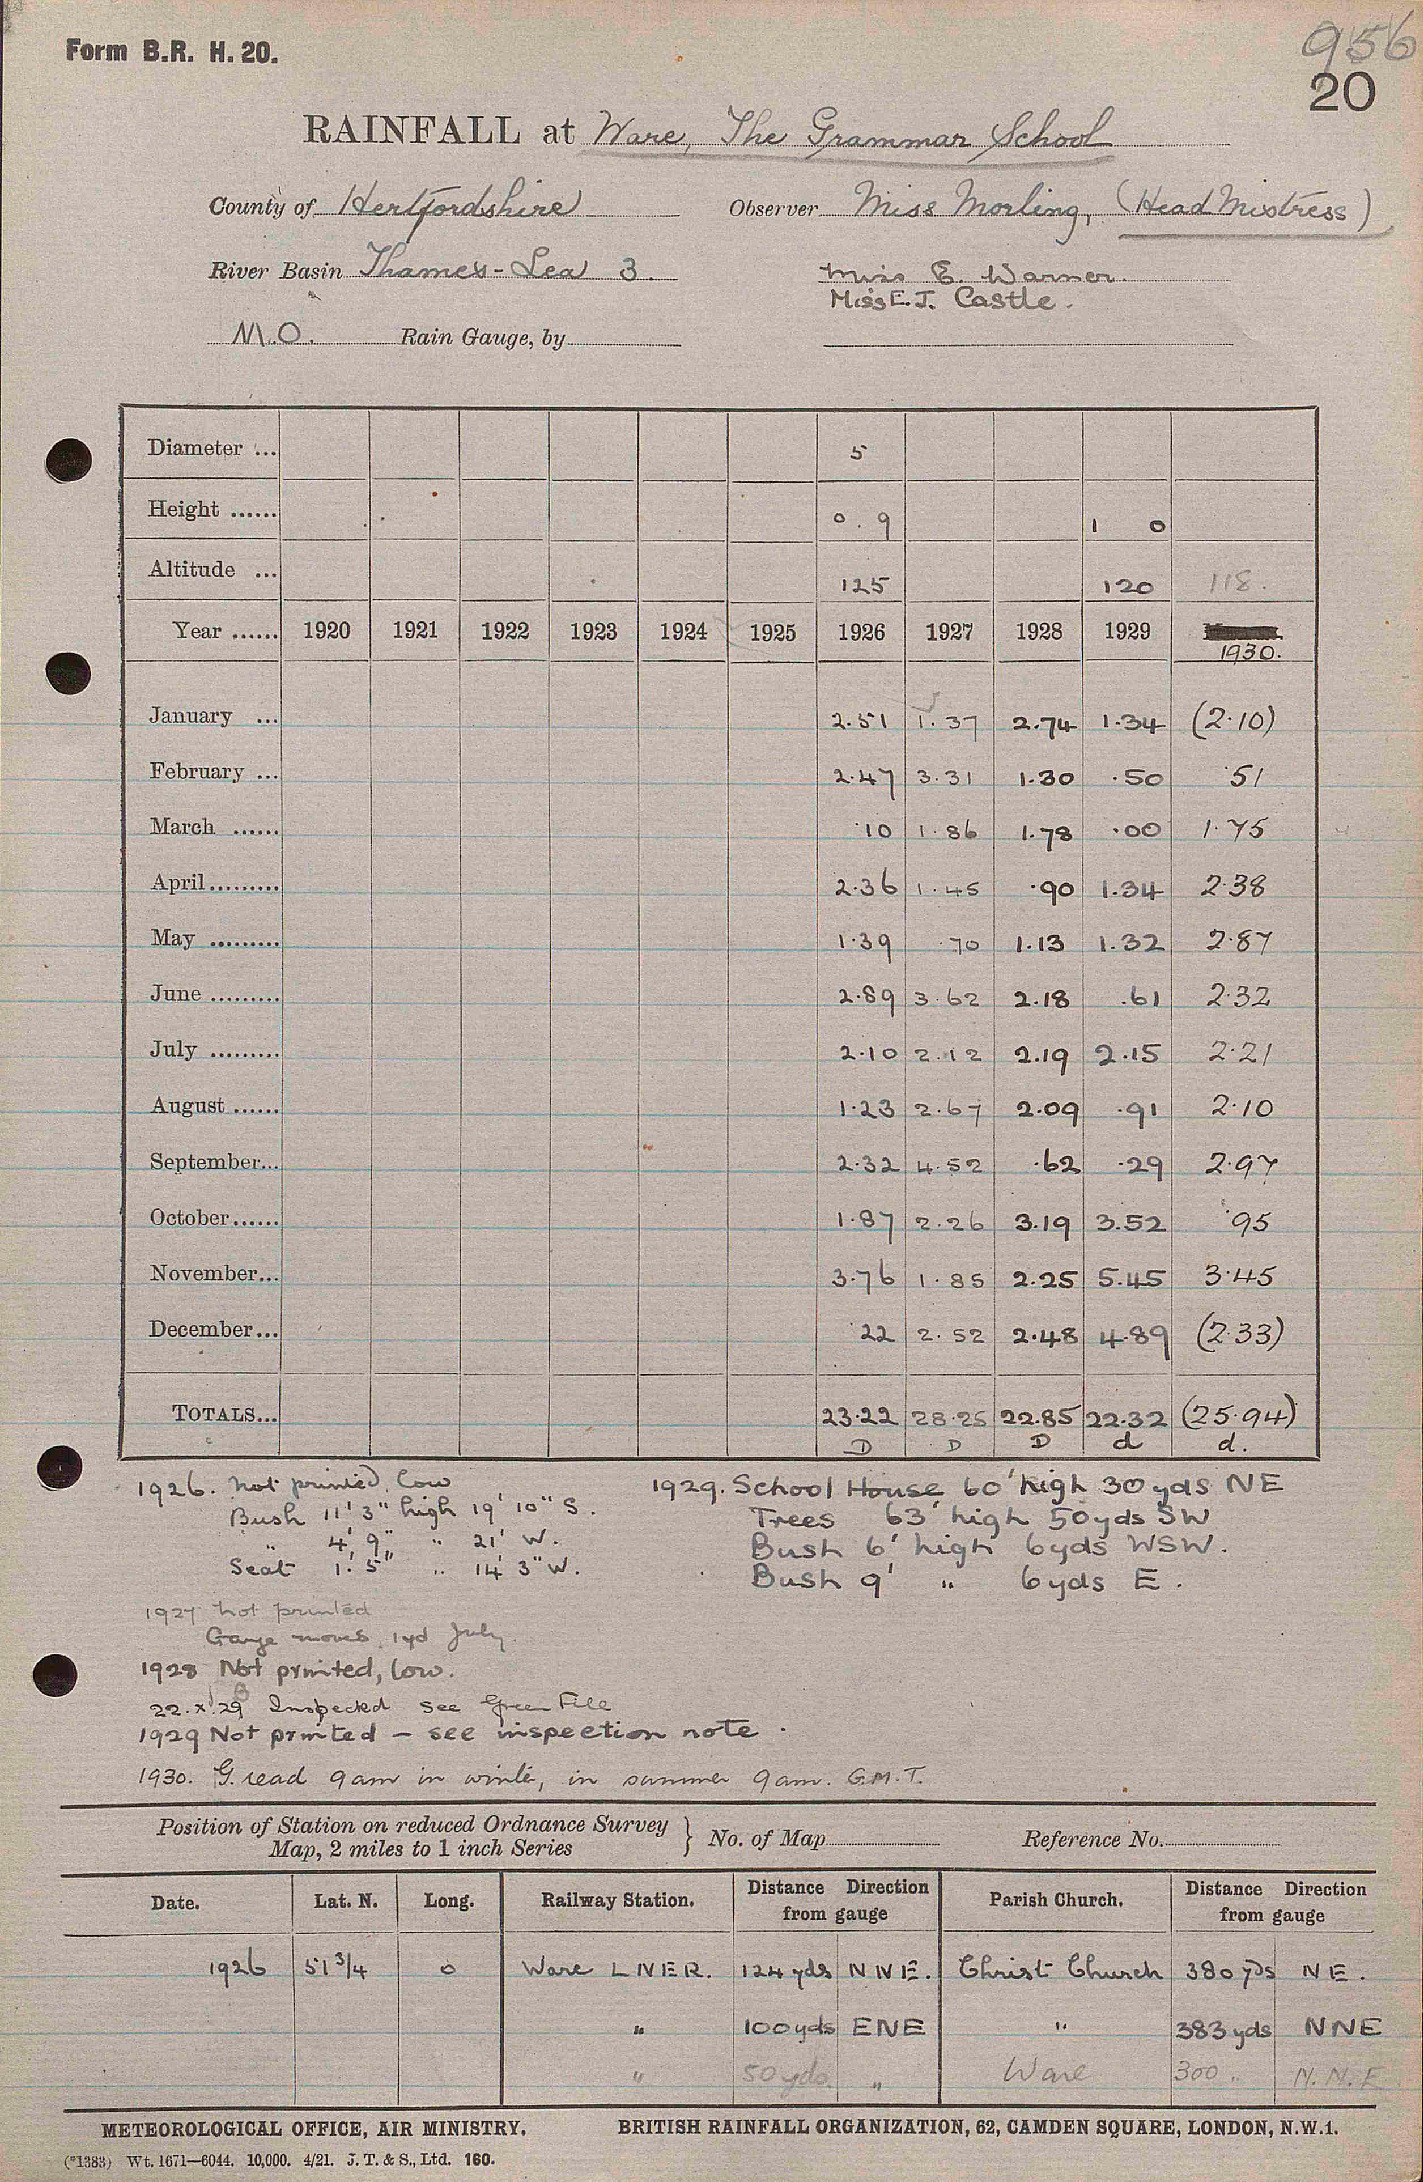 Form B.R. H. 20.
956
20
RAINFALL at Ware, The Grammar School
County of Hertfordshire Observer Miss Morling, (Head Mistress)
River Basin Thames - Lea 3. Miss E. Warner
Miss E.J. Castle.
M.O. Rain Gauge, by
Diameter ... 5
Height ...... 0.9 1 0
Altitude ... 125 120 118.
Year ...... 1920 1921 1922 1923 1924 1925 1926 1927 1928 1929 1930.
January ... 2.51 1.37 2.74 1.34 (2.10)
February ... 2.47 3.31 1.30 .50 .51
March ...... .10 1.86 1.78 .00 1.75
April......... 2.36 1.45 .90 1.34 2.38
May ......... 1.39 .70 1.13 1.32 2.87
June ......... 2.89 3.62 2.18 .61 2.32
July ......... 2.10 2.12 2.19 2.15 2.21
August ...... 1.23 2.67 2.09 .91 2.10
September... 2.32 4.52 .62 .29 2.97
October...... 1.87 2.26 3.19 3.52 .95
November... 3.76 1.85 2.25 5.45 3.45
December... .22 2.52 2.48 4.89 (2.33)
TOTALS... 23.22 28.25 22.85 22.32 (25.94)
D D D d d.
1926. Not printed, low
Bush 11' 3" high 19' 10" S.
" 4' 9" " 21' W.
Seat 1' 5" " 14' 3" W.
1929. School House 60' high 30 yds NE
Trees 63' high 50 yds SW
Bush 6' high 6 yds WSW.
Bush 9' " 6 yds E.
1927 Not printed
Gauge moved 1 yd July.
1928 Not printed, low.
22.X.29 Inspected see Green File
1929 Not printed - see inspection note.
1930. G. read 9am in winter, in summer 9am. G.M.T.
Position of Station on reduced Ordnance Survey
Map, 2 miles to 1 inch Series } No. of Map Reference No.
Date. Lat. N. Long. Railway Station. Distance Direction from gauge Parish Church. Distance Direction from gauge
1926 51 3/4 0 Ware L N E R. 124 yds N N E. Christ Church 380 yds NE.
" 100 yds ENE " 383 yds NNE
" 50 yds. " Ware 300 " N.N.E
METEOROLOGICAL OFFICE, AIR MINISTRY. BRITISH RAINFALL ORGANIZATION, 62, CAMDEN SQUARE, LONDON, N.W.1.
(*1383) Wt. 1671—6044. 10,000. 4/21. J. T. & S., Ltd. 160.